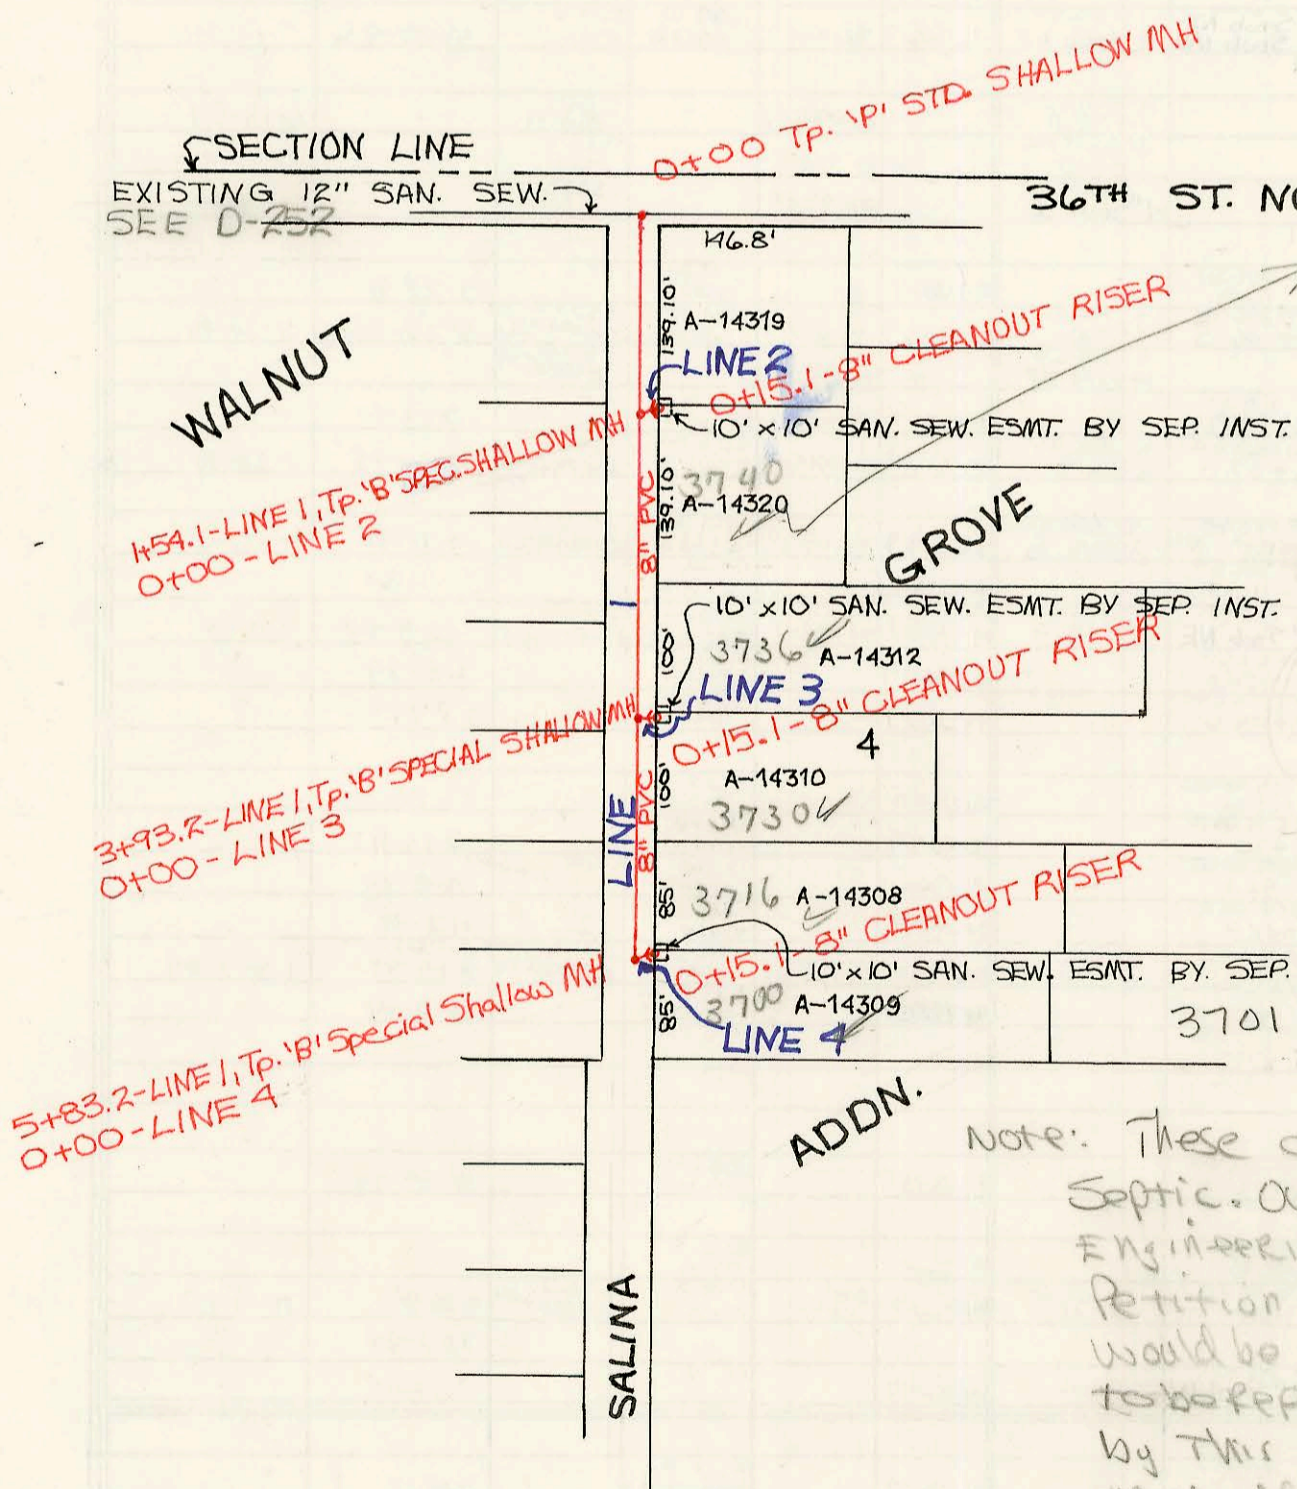 0+00 Tp. 'P' STD. SHALLOW MH
SECTION LINE
EXISTING 12" SAN. SEW.
SEE D-252
36TH ST. NO
146.8'
139.10'
A-14319
LINE 2
0+15.1-8" CLEANOUT RISER
10' x 10' SAN. SEW. ESMT. BY SEP. INST.
WALNUT
1+54.1-LINE 1, Tp. 'B' SPEC. SHALLOW MH
0+00 - LINE 2
8" PVC
139.10'
3740
A-14320
GROVE
10' x 10' SAN. SEW. ESMT. BY SEP. INST.
100'
3736
A-14312
LINE 3
0+15.1-8" CLEANOUT RISER
3+93.2-LINE 1, Tp. 'B' SPECIAL SHALLOW MH
0+00 - LINE 3
4
LINE 1
8" PVC
100'
A-14310
3730
85'
3716
A-14308
0+15.1-8" CLEANOUT RISER
10' x 10' SAN. SEW. ESMT. BY. SEP.
5+83.2-LINE 1, Tp. 'B' Special Shallow MH
0+00-LINE 4
85'
3700
A-14309
LINE 4
3701
ADDN.
SALINA
Note: These
Septic.
Petition
would be
by This